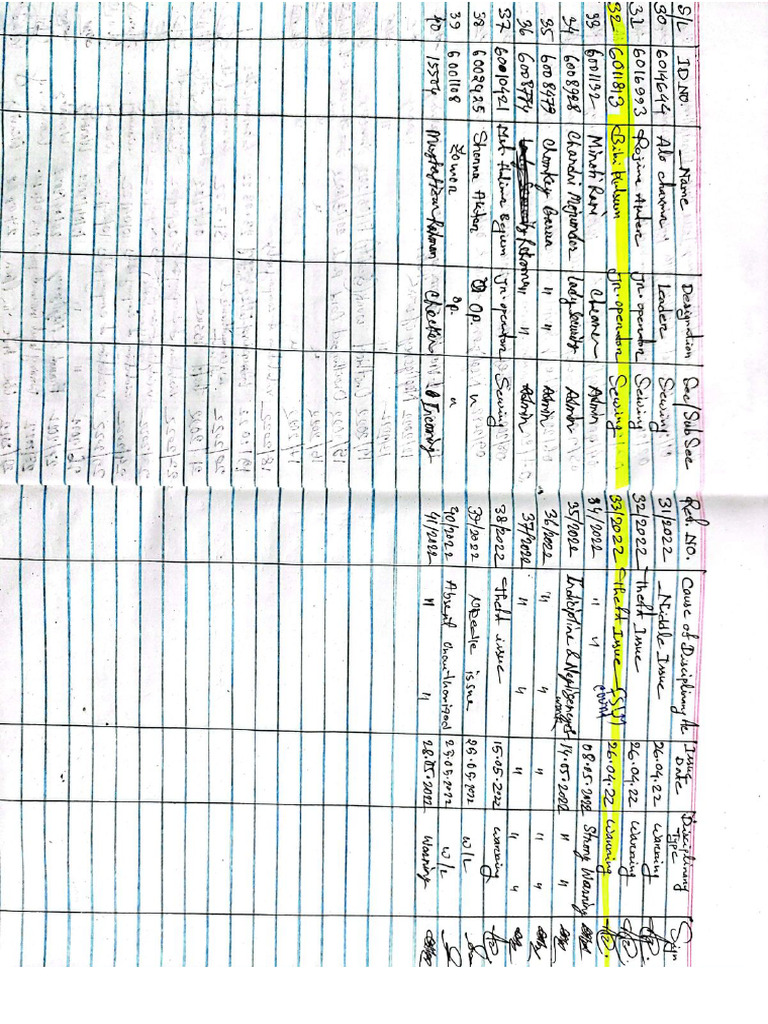 S/L ID.NO. Name Designation Sec/Sub Sec Ref. NO. Cause of Disciplinary Ac Issue Date Disciplinary Type Sign
30 6014644 Alo Leader Sewing 31/2022 Niddle Issue 26.04.22 Warning
31 6016993 Rojina Akter Jn. operator Sewing 32/2022 Theft Issue 26.04.22 Warning
32 6011813 Bibi Kulsum Jn. operator Sewing 33/2022 Theft Issue 26.04.22 Warning
33 6001132 Minoti Rani Cleaner Admin 34/2022 " " 08.05.2022 Strong Warning
34 6008928 Chandni Mojumder Lady Security Admin 35/2022 Indicipline & Negligences work 14.05.2022 " "
35 6008479 Barua " " Admin 36/2022 " " " " "
36 6008774 " " Admin 37/2022 " " " " "
37 60010421 Mst Halima Begum Jn. operator Sewing 38/2022 Theft issue 15.05.2022 Warning
38 6002425 Sharma Akter Op. " 39/2022 Needle issue 25.05.2022 W/L
39 6001108 Zomon Op. " 40/2022 Absent Unauthorized 25.05.2022 W/L
40 15504 Mustafizur Rahman Checker Incoming 41/2022 " " 28.05.2022 Warning